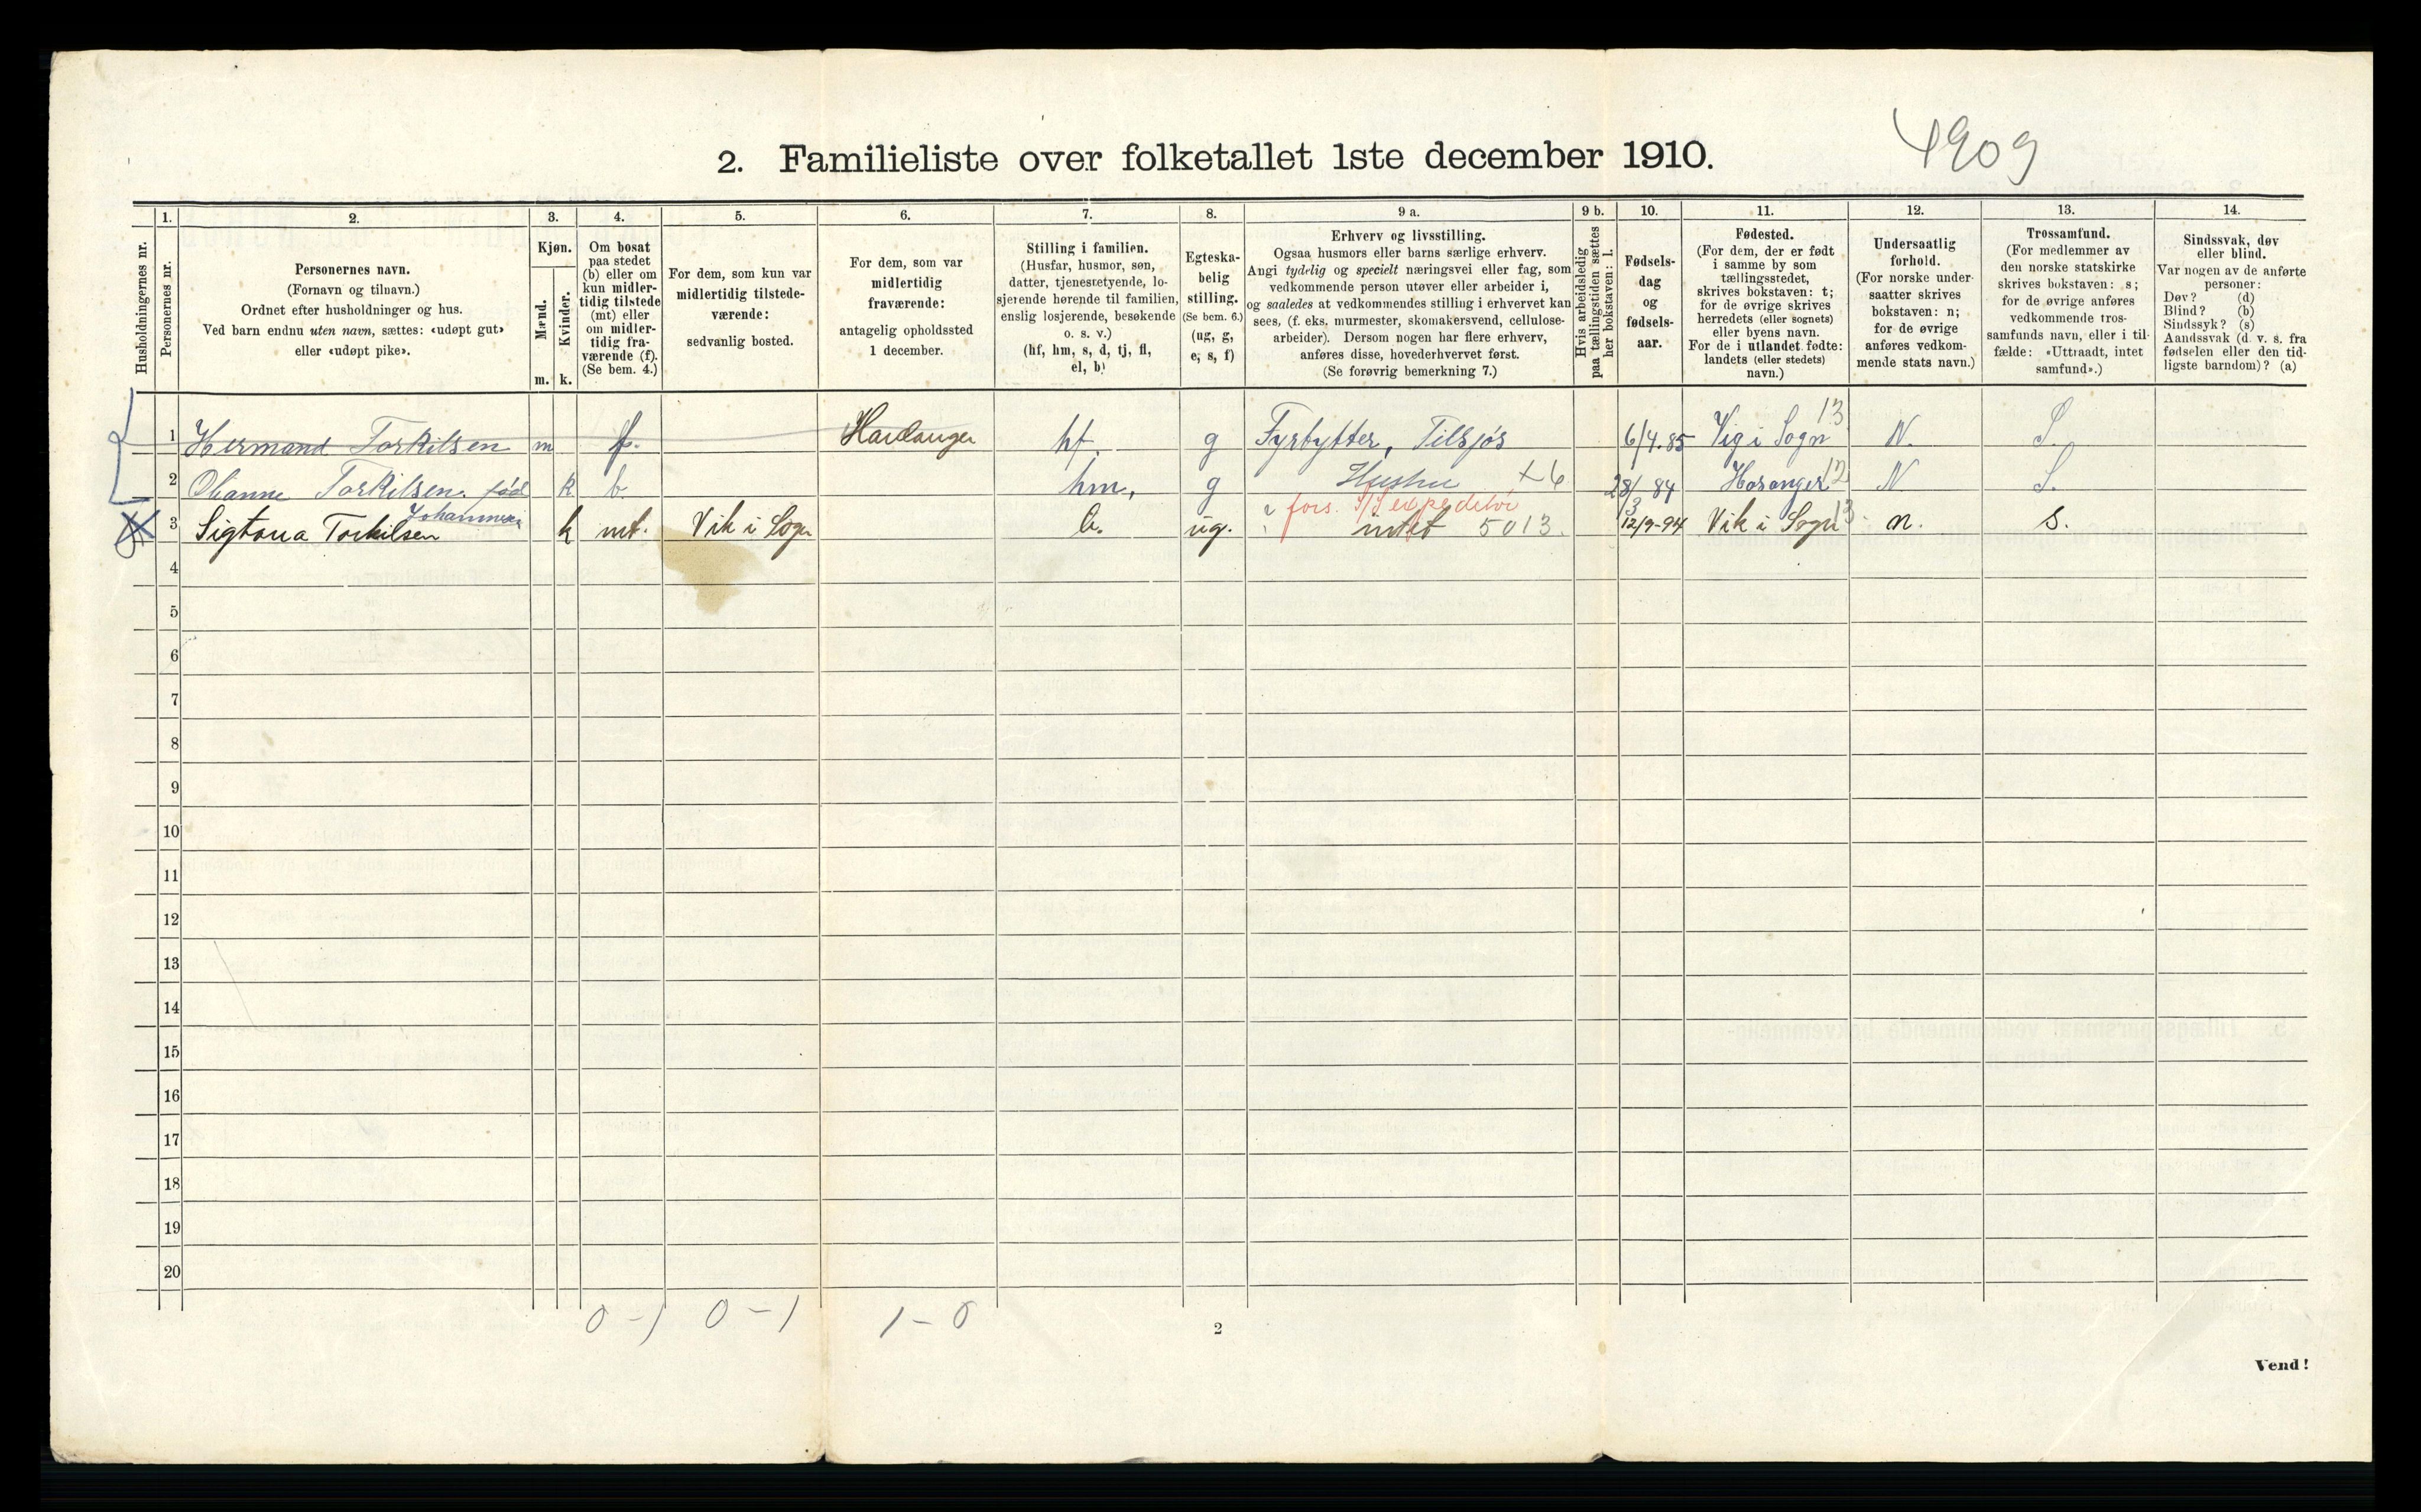 4909
2. Familieliste over folketallet 1ste december 1910.
Husholdningernes nr.
1. Personernes nr.
2. Personernes navn.
(Fornavn og tilnavn.)
Ordnet efter husholdninger og hus.
Ved barn endnu uten navn, sættes: «udøpt gut»
eller «udøpt pike».
3. Kjøn.
Mænd. m.
Kvinder. k.
4. Om bosat
paa stedet
(b) eller om
kun midler-
tidig tilstede
(mt) eller
om midler-
tidig fra-
værende (f).
(Se bem. 4.)
5. For dem, som kun var
midlertidig tilstede-
værende:
sedvanlig bosted.
6. For dem, som var
midlertidig
fraværende:
antagelig opholdssted
1 december.
7. Stilling i familien.
(Husfar, husmor, søn,
datter, tjenestetyende, lo-
sjerende hørende til familien,
enslig losjerende, besøkende
o. s. v.)
(hf, hm, s, d, tj, fl,
el, b)
8. Egteska-
belig
stilling.
(Se bem. 6.)
(ug, g,
e, s, f)
9 a. Erhverv og livsstilling.
Ogsaa husmors eller barns særlige erhverv.
Angi tydelig og specielt næringsvei eller fag, som
vedkommende person utøver eller arbeider i,
og saaledes at vedkommendes stilling i erhvervet kan
sees, (f. eks. murmester, skomakersvend, cellulose-
arbeider). Dersom nogen har flere erhverv,
anføres disse, hovederhvervet først.
(Se forøvrig bemerkning 7.)
9 b. Hvis arbeidsledig
paa tællingstiden sættes
her bokstaven: l.
10. Fødsels-
dag
og
fødsels-
aar.
11. Fødested.
(For dem, der er født
i samme by som
tællingsstedet,
skrives bokstaven: t;
for de øvrige skrives
herredets (eller sognets)
eller byens navn.
For de i utlandet fødte:
landets (eller stedets)
navn.)
12. Undersaatlig
forhold.
(For norske under-
saatter skrives
bokstaven: n;
for de øvrige
anføres vedkom-
mende stats navn.)
13. Trossamfund.
(For medlemmer av
den norske statskirke
skrives bokstaven: s;
for de øvrige anføres
vedkommende tros-
samfunds navn, eller i til-
fælde: «Uttraadt, intet
samfund».)
14. Sindssvak, døv
eller blind.
Var nogen av de anførte
personer:
Døv? (d)
Blind? (b)
Sindssyk? (s)
Aandssvak (d. v. s. fra
fødselen eller den tid-
ligste barndom)? (a)
1 Hermand Torkilsen m f. Hardanger hf. g Fyrbytter, Tilsjøs 6/4.85 Vig i Sogn 13 N. S.
2 Torkilsen. fød k b. hm, g Hustru +6 28/3 84 Hosanger 12 N S.
Johannesen
fors. expeditør
3 Sigtona Torkilsen k mt. Vik i Sogn b. ug. intet 5013. 12/9-94 Vik i Sogn 13. n. s.
4
5
6
7
8
9
10
11
12
13
14
15
16
17
18
19
20
0-1 0-1 1-0
2
Vend!